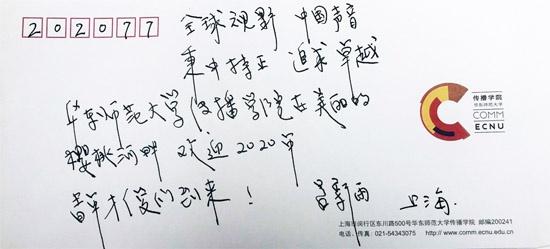 202077
全球视野 中国声音
秉中持正 追求卓越
华东师范大学传播学院在美丽的
樱桃河畔 欢迎2020年
菁英们到来！
上海.
传播学院
华东师范大学
COMM
ECNU
上海市闵行区东川路500号华东师范大学传播学院 邮编200241
电话、传真：021-54343075 http://www.comm.ecnu.edu.cn